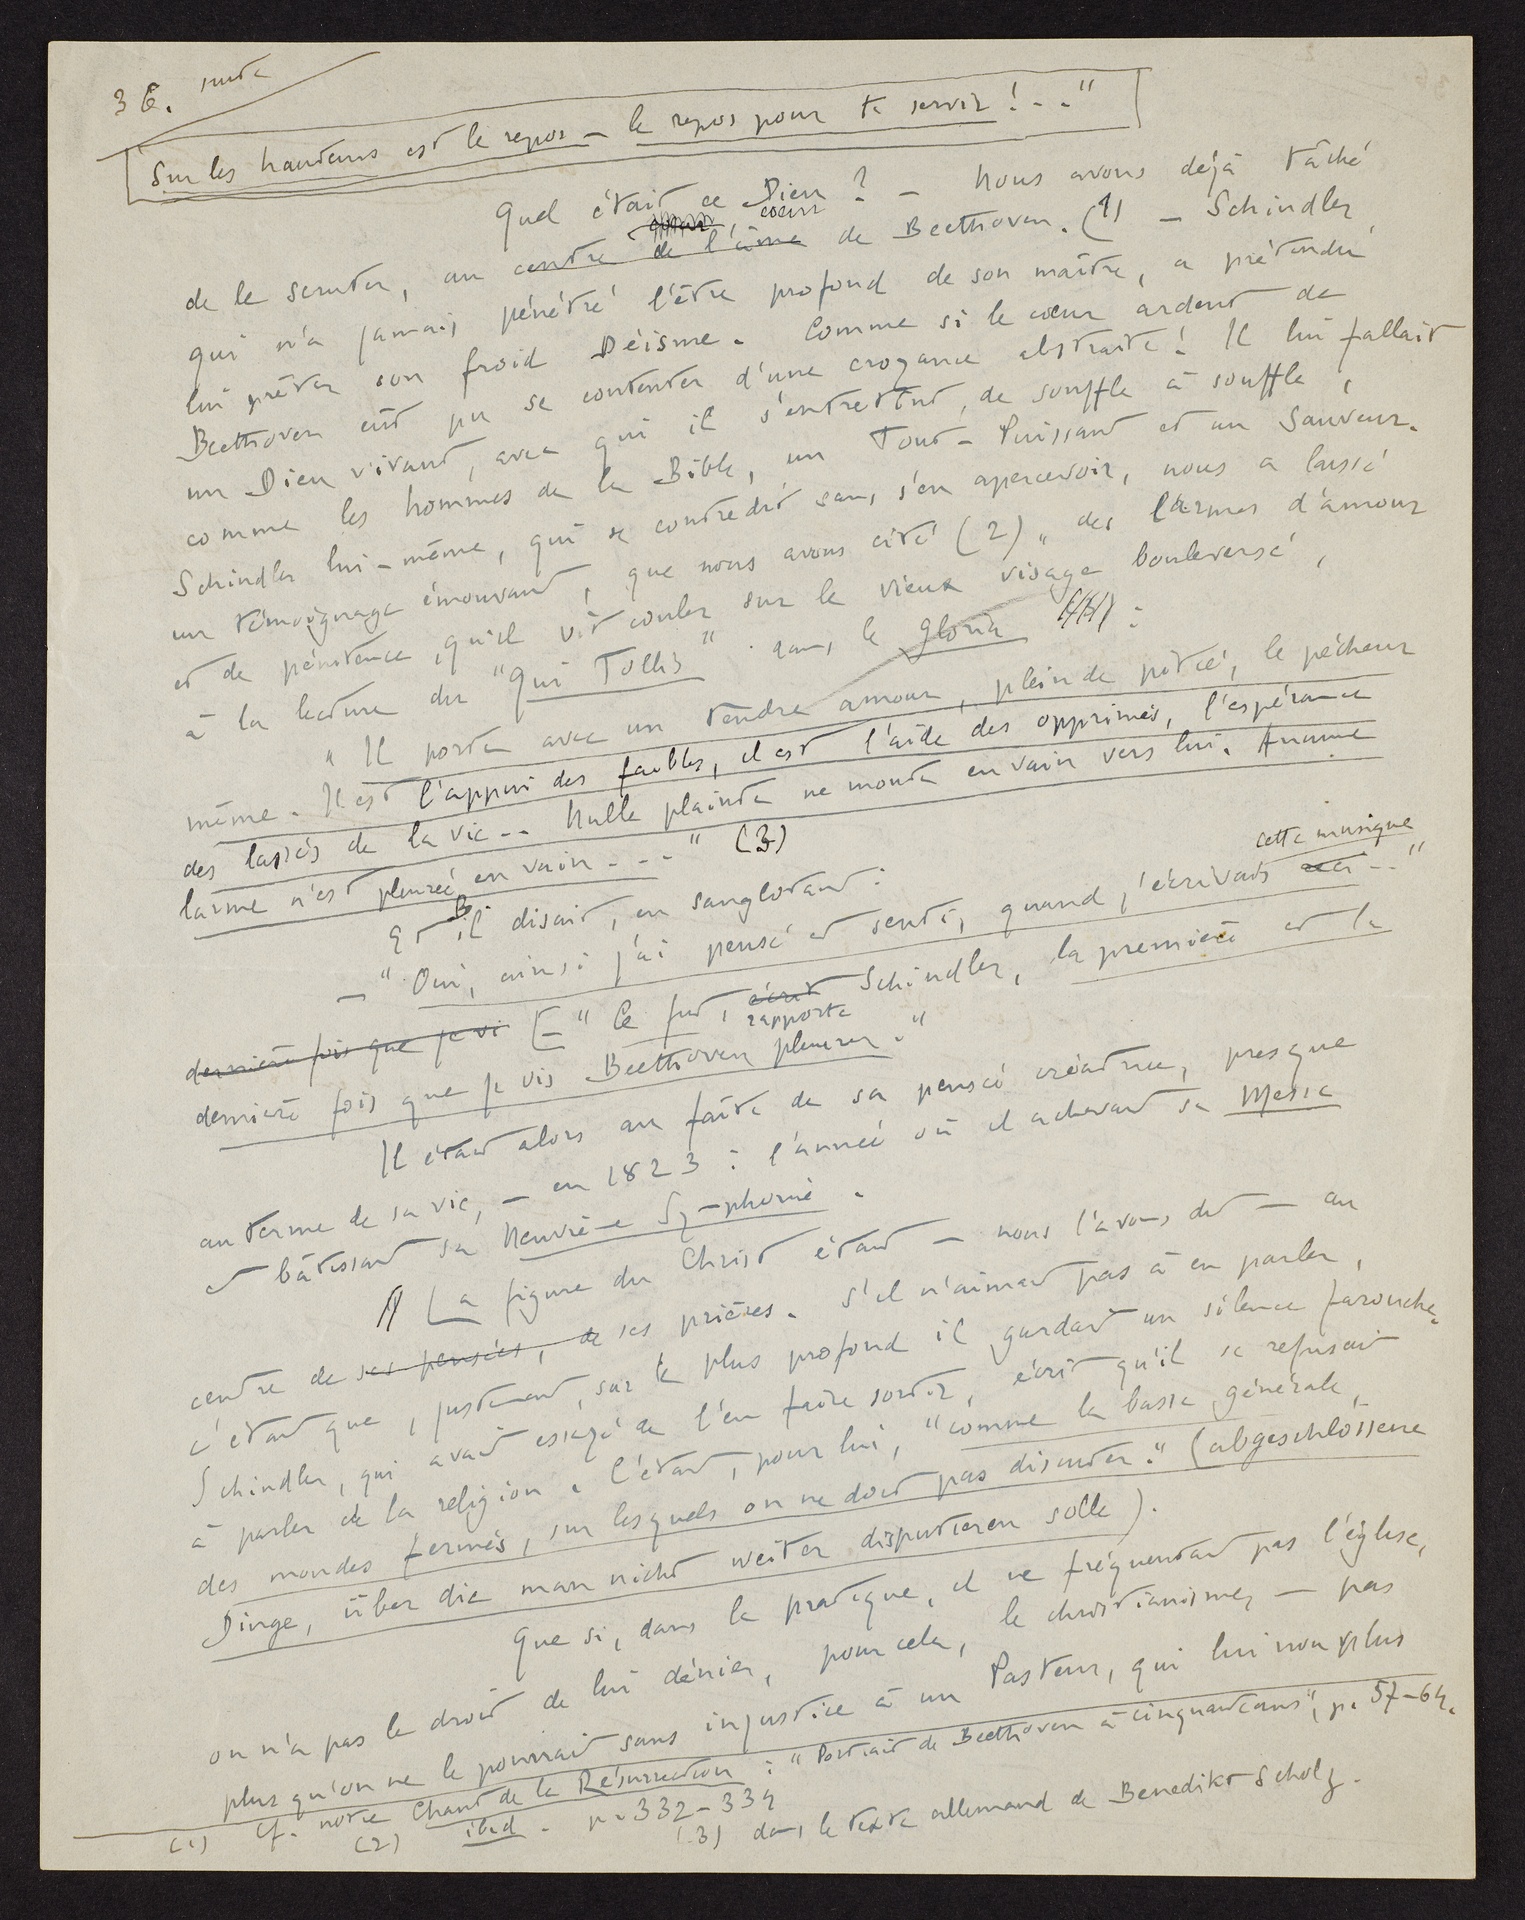 36. suite
Sur les hauteurs est le repos — le repos pour te servir !.. "
Quel était ce Dieu ? — Nous avons déjà tâché
cœur
de le scruter, au centre de l'âme de Beethoven. (1) — Schindler
qui n'a jamais pénétré l'être profond de son maître, a prétendu
lui prêter son froid Déisme. Comme si le cœur ardent de
Beethoven eût pu se contenter d'une croyance abstraite ! Il lui fallait
un Dieu vivant, avec qui il s'entretînt, de souffle à souffle,
comme les hommes de la Bible, un Tout-Puissant et un Sauveur.
Schindler lui-même, qui se contredit sans s'en apercevoir, nous a laissé
un témoignage émouvant, que nous avons cité (2) „ des larmes d'amour
et de pénitence, qu'il vit couler sur le vieux visage bouleversé,
à la lecture du "Qui Tollis" dans le Gloria :
" Il porte avec un tendre amour, plein de pitié, le pécheur
même. Il est l'appui des faibles, il est l'aide des opprimés, l'espérance
des lassés de la vie.. Nulle plainte ne monte en vain vers lui. Aucune
larme n'est pleurée en vain... " (3)
cette musique
Et B. disait, en sanglotant :
— " Oui, ainsi j'ai pensé et senti, quand j'écrivais ceci.. "
dernière fois que je vi [— " Ce fut, écrit Schindler, la première et la
rapporte
dernière fois que je vis Beethoven pleurer. "
Il était alors au faîte de sa pensée créatrice, presque
au terme de sa vie, — en 1823 : l'année où il achevait sa Messe
et bâtissait sa Neuvième Symphonie.
¶ La figure du Christ était — nous l'avons dit — au
centre de ses pensées, de ses prières. S'il n'aimait pas à en parler,
c'était que, justement, sur le plus profond il gardait un silence farouche.
Schindler, qui avait essayé de l'en faire sortir, écrit qu'il se refusait
à parler de la religion. C'était, pour lui, "comme la basse générale,
des mondes fermés, sur lesquels on ne doit pas discuter." (abgeschlossene
Dinge, über die man nicht weiter disputieren solle).
Que si, dans la pratique, il ne fréquentait pas l'église,
on n'a pas le droit de lui dénier, pour cela, le christianisme, — pas
plus qu'on ne le pourrait sans injustice à un Pasteur, qui lui non plus
(1) Cf. notre Chant de la Résurrection : "Portrait de Beethoven à cinquante ans", p. 57-64.
(2) ibid. p. 332-334
(3) dans le texte allemand de Benedikt Scholz.